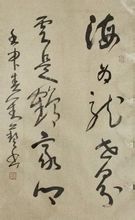 海为龙世界
云是鹤家乡
壬申